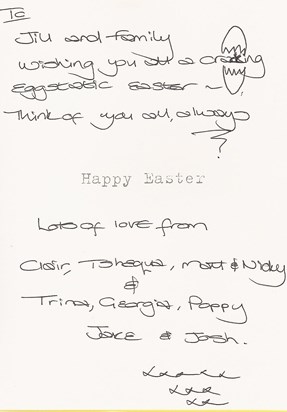 To
Jill and family
wishing you all a cracking
eggstatic easter ~
Think of you all, always
?
Happy Easter
Lots of love from
Clair, Tshequa, Matt & Nicky
&
Trina, Georgia, Poppy
Jake & Josh.
xxxxx
xxx
xx